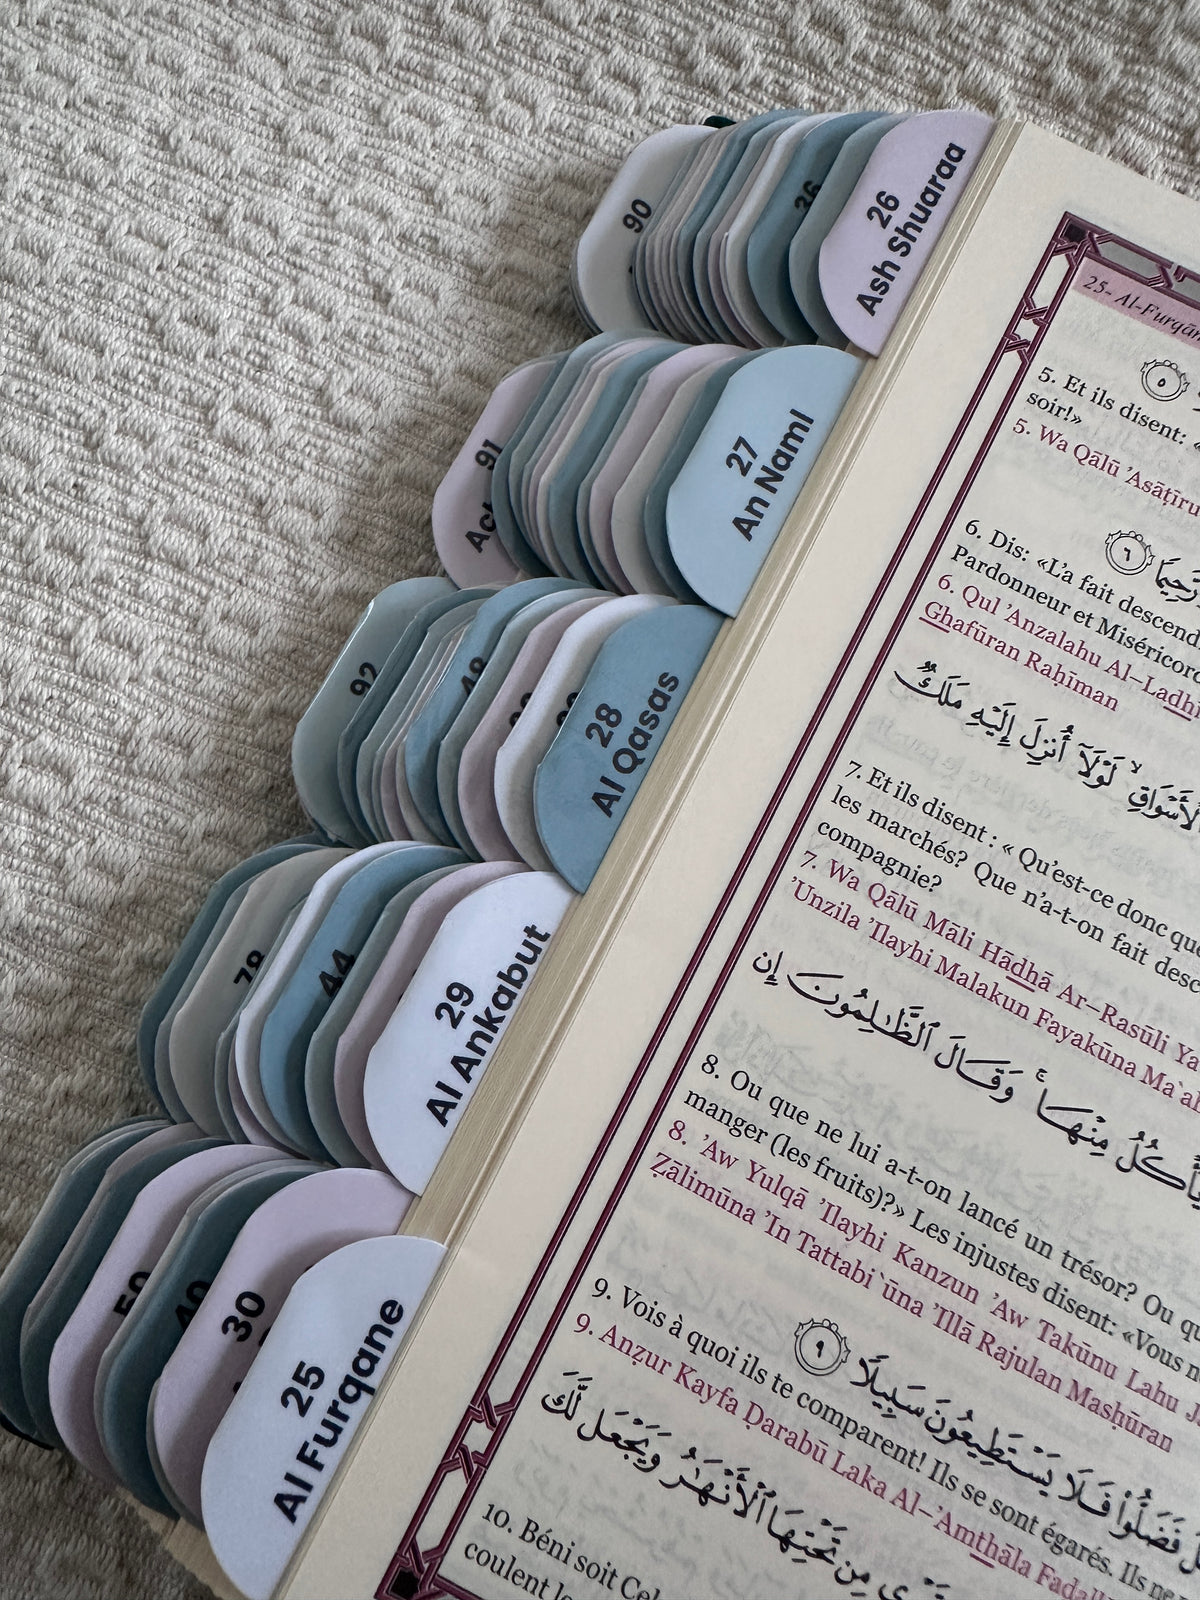 90
36
26
Ash Shuaraa
91
27
An Naml
92
48
28
Al Qasas
78
44
29
Al Ankabut
50
40
30
25
Al Furqane
25- Al-Furqān
٥
5. Et ils disent: «
soir!»
5. Wa Qālū 'Asāṭīru
٦
6. Dis: «L'a fait descend
Pardonneur et Miséricord
6. Qul 'Anzalahu Al–Ladhī
Ghafūran Raḥīman
لَوْلَآ أُنزِلَ إِلَيْهِ مَلَكٌ
7. Et ils disent : « Qu'est-ce donc que
les marchés? Que n'a-t-on fait desc
compagnie?
7. Wa Qālū Māli Hādhā Ar–Rasūli Ya
'Unzila 'Ilayhi Malakun Fayakūna Ma`ah
يَأْكُلُ مِنْهَا ۚ وَقَالَ ٱلظَّٰلِمُونَ إِن
8. Ou que ne lui a-t-on lancé un trésor? Ou qu
manger (les fruits)?» Les injustes disent: «Vous n
8. 'Aw Yulqá 'Ilayhi Kanzun 'Aw Takūnu Lahu J
Žālimūna 'In Tattabi`ūna 'Illā Rajulan Masḥūran
فَضَلُّوا۟ فَلَا يَسْتَطِيعُونَ سَبِيلًا ٩
9. Vois à quoi ils te comparent! Ils se sont égarés. Ils ne
9. Anẓur Kayfa Ḍarabū Laka Al–'Amthāla Faḍallū
مِن تَحْتِهَا ٱلْأَنْهَٰرُ وَيَجْعَل لَّكَ
10. Béni soit Cel
coulent le